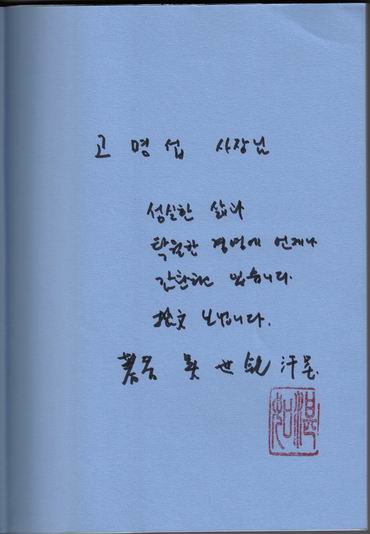 고 명 섭 사장님
성실한 삶과
탁월한 경영에 언제나
감탄하고 있습니다.
拙文 보냅니다.
吳 世